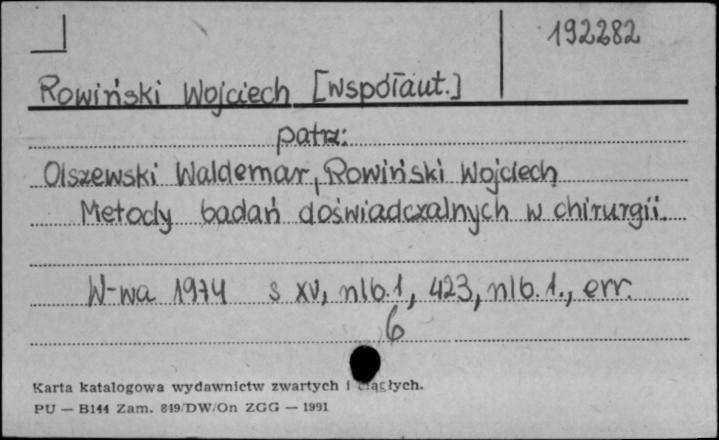 192282
Rowiński Wojciech [współaut.]
patrz:
Olszewski Waldemar, Rowiński Wojciech
Metody badań doświadczalnych w chirurgii.
W-wa 1974 s XV, nlb.1, 423, nlb.1., err.
6
Karta katalogowa wydawnictw zwartych i ciągłych.
PU — B144 Zam. 849/DW/On ZGG — 1991